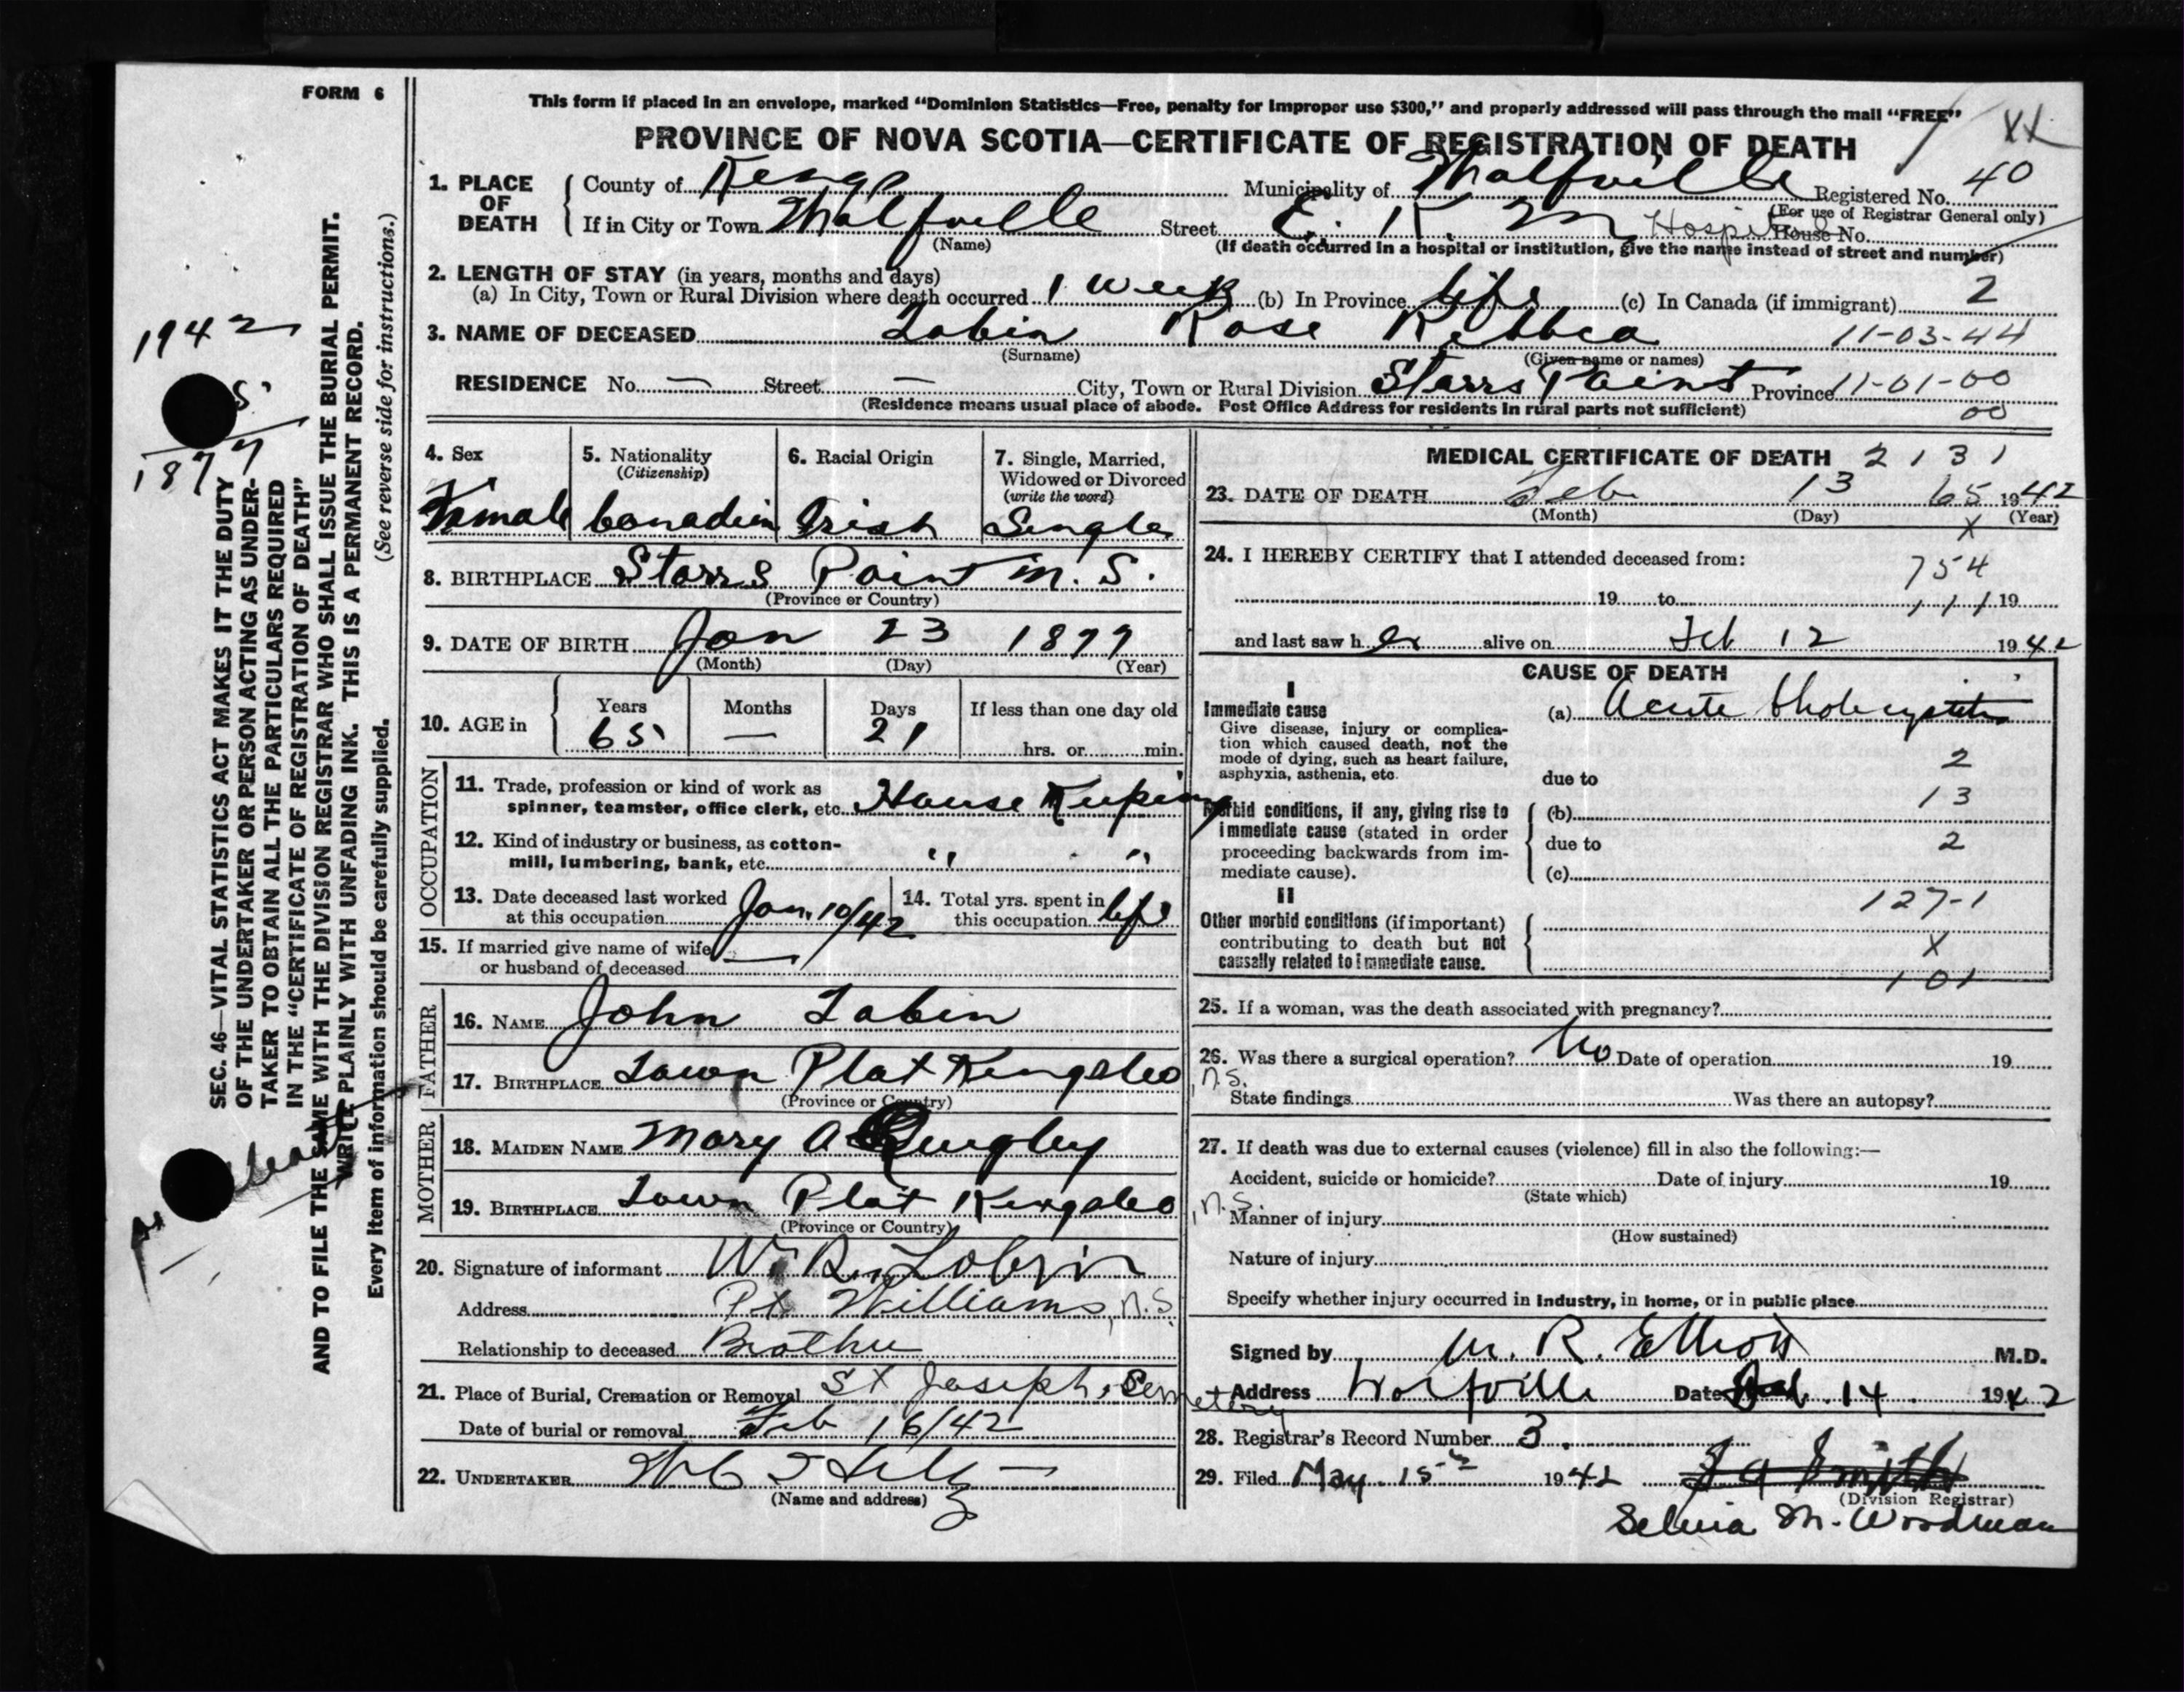 FORM 6
This form if placed in an envelope, marked “Dominion Statistics—Free, penalty for improper use $300,” and properly addressed will pass through the mail “FREE”
XX
PROVINCE OF NOVA SCOTIA—CERTIFICATE OF REGISTRATION OF DEATH
1. PLACE OF DEATH
County of Kings Municipality of Wolfville Registered No. 40
(For use of Registrar General only)
If in City or Town Wolfville Street E. K. M Hospital House No.
(Name)
(If death occurred in a hospital or institution, give the name instead of street and number)
2. LENGTH OF STAY (in years, months and days)
(a) In City, Town or Rural Division where death occurred 1 week (b) In Province life (c) In Canada (if immigrant) 2
3. NAME OF DECEASED Tobin Rose Rebbca 11-03-44
(Surname) (Given name or names)
RESIDENCE No. — Street — City, Town or Rural Division Starrs Point Province 11-01-00
(Residence means usual place of abode. Post Office Address for residents in rural parts not sufficient) 00
4. Sex
Female
5. Nationality
(Citizenship)
Canadian
6. Racial Origin
Irish
7. Single, Married,
Widowed or Divorced
(write the word)
Single
8. BIRTHPLACE Starrs Point N. S.
(Province or Country)
9. DATE OF BIRTH Jan 23 1877
(Month) (Day) (Year)
10. AGE in
Years Months Days If less than one day old
65 — 21 hrs. or min.
OCCUPATION
11. Trade, profession or kind of work as
spinner, teamster, office clerk, etc. House Keeping
12. Kind of industry or business, as cotton-
mill, lumbering, bank, etc. " "
13. Date deceased last worked
at this occupation Jan. 10/42
14. Total yrs. spent in
this occupation life
15. If married give name of wife
or husband of deceased —
FATHER
16. NAME John Tobin
17. BIRTHPLACE Town Plat Kings Co N.S.
(Province or Country)
MOTHER
18. MAIDEN NAME Mary A Quigley
19. BIRTHPLACE Town Plat Kings Co N.S.
(Province or Country)
20. Signature of informant W. R. Tobin
Address Pt Williams, N.S.
Relationship to deceased Brother
21. Place of Burial, Cremation or Removal St Joseph, Cemetery
Date of burial or removal Feb 16/42
22. UNDERTAKER
(Name and address)
MEDICAL CERTIFICATE OF DEATH 2131
23. DATE OF DEATH Feb 13 65 1942
(Month) (Day) (Year)
X
24. I HEREBY CERTIFY that I attended deceased from:
754
19 to 111 19
and last saw h er alive on Feb 12 1942
CAUSE OF DEATH
I
Immediate cause
Give disease, injury or complica-
tion which caused death, not the
mode of dying, such as heart failure,
asphyxia, asthenia, etc.
(a) Acute Cholecystitis
2
due to
13
Morbid conditions, if any, giving rise to
immediate cause (stated in order
proceeding backwards from im-
mediate cause).
(b)
due to 2
(c)
127-1
II
Other morbid conditions (if important)
contributing to death but not
causally related to immediate cause.
X
101
25. If a woman, was the death associated with pregnancy?
26. Was there a surgical operation? No Date of operation 19
State findings Was there an autopsy?
27. If death was due to external causes (violence) fill in also the following:—
Accident, suicide or homicide? Date of injury 19
(State which)
Manner of injury
(How sustained)
Nature of injury
Specify whether injury occurred in industry, in home, or in public place
Signed by M. R. Elliott M.D.
Address Wolfville Date Feb. 14 1942
28. Registrar's Record Number 3.
29. Filed May 15th 1942
(Division Registrar)
Selina M. Woodman
SEC. 46—VITAL STATISTICS ACT MAKES IT THE DUTY
OF THE UNDERTAKER OR PERSON ACTING AS UNDER-
TAKER TO OBTAIN ALL THE PARTICULARS REQUIRED
IN THE “CERTIFICATE OF REGISTRATION OF DEATH”
AND TO FILE THE SAME WITH THE DIVISION REGISTRAR WHO SHALL ISSUE THE BURIAL PERMIT.
WRITE PLAINLY WITH UNFADING INK. THIS IS A PERMANENT RECORD.
Every item of information should be carefully supplied.
(See reverse side for instructions.)
1942
1877